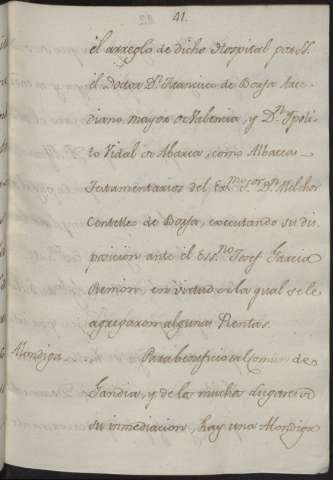 41.
el arreglo de dicho Hospital por el
el Doctor Dn. Francisco de Borja Arce-
diano mayor de Valencia, y Dn. Ypoli-
to Vidal de Abarca, como Albaceas
Testamentarios del Exmo. Sor. Dn. Melchor
Centelles de Borja, executando su dis-
posicion ante el Essno. Josef Garcia
Remon, en virtud de la qual se le
agregaron algunas Rentas.
Alondiga. Para beneficio al Comun de
Gandia, y de la muchos lugares de
su inmediacion, hay una Alondiga